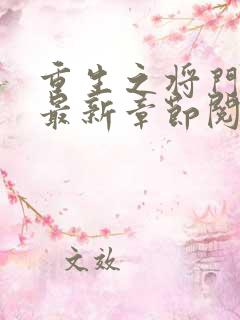 重生之将门
最新章节阅
文效